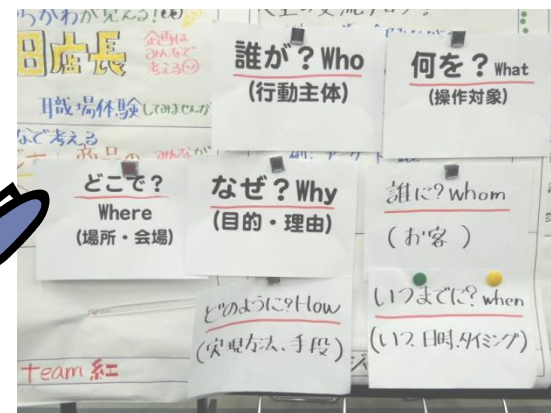 が見える!
店長
企画は
みんなで
考える
職場体験してみませんか
など考える
誰が?Who
(行動主体)
何を?What
(操作対象)
どこで?
Where
(場所・会場)
なぜ?Why
(目的・理由)
誰に?whom
(お客)
どのように?How
(実現方法、手段)
いつまでに?when
(いつ、日時、タイミング)
team 紅